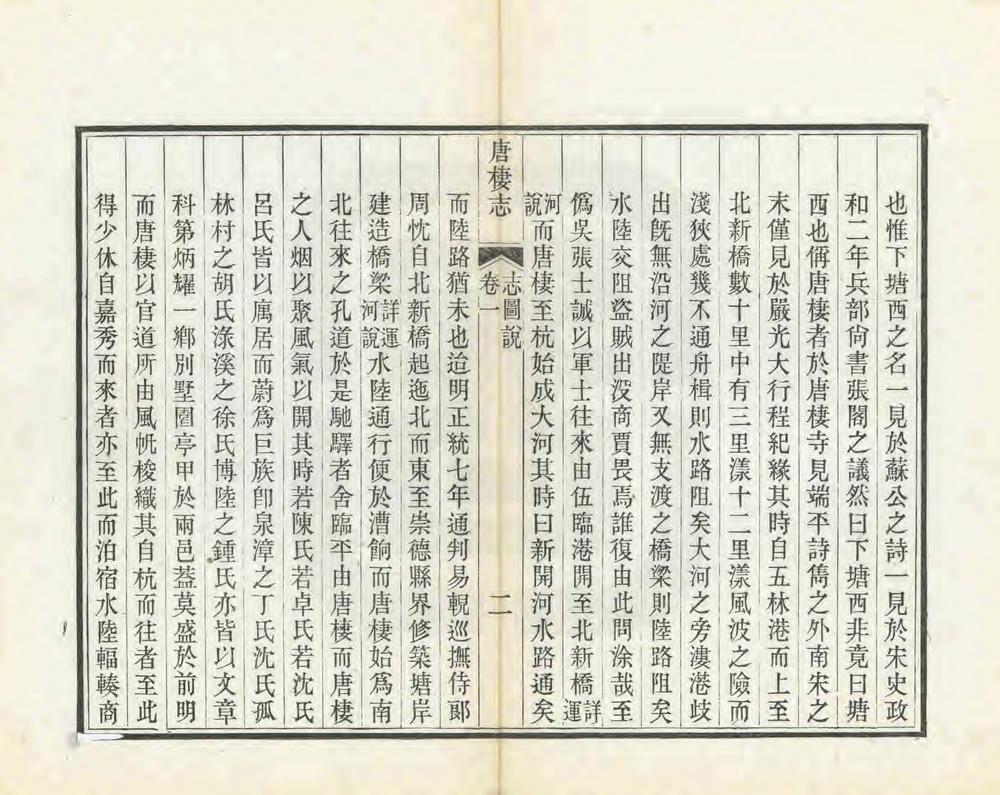 也惟下塘西之名一見於蘇公之詩一見於宋史政
和二年兵部尙書張閣之議然曰下塘西非竟曰塘
西也稱唐棲者於唐棲寺見端平詩雋之外南宋之
末僅見於嚴光大行程紀緣其時自五林港而上至
北新橋數十里中有三里漾十二里漾風波之險而
淺狹處幾不通舟楫則水路阻矣大河之旁漊港歧
出旣無沿河之隄岸又無支渡之橋梁則陸路阻矣
水陸交阻盜賊出沒商賈畏焉誰復由此問涂哉至
僞吳張士誠以軍士往來由伍臨港開至北新橋詳運
河說而唐棲至杭始成大河其時曰新開河水路通矣
唐棲志
卷一
志圖說
二
而陸路猶未也迨明正統七年通判易輗巡撫侍郞
周忱自北新橋起迤北而東至崇德縣界修築塘岸
建造橋梁詳運河說水陸通行便於漕餉而唐棲始爲南
北往來之孔道於是馳驛者舍臨平由唐棲而唐棲
之人烟以聚風氣以開其時若陳氏若卓氏若沈氏
呂氏皆以寓居而蔚爲巨族卽泉漳之丁氏沈氏孤
林村之胡氏淥溪之徐氏博陸之鍾氏亦皆以文章
科第炳耀一鄉別墅園亭甲於兩邑蓋莫盛於前明
而唐棲以官道所由風帆梭織其自杭而往者至此
得少休自嘉秀而來者亦至此而泊宿水陸輻輳商